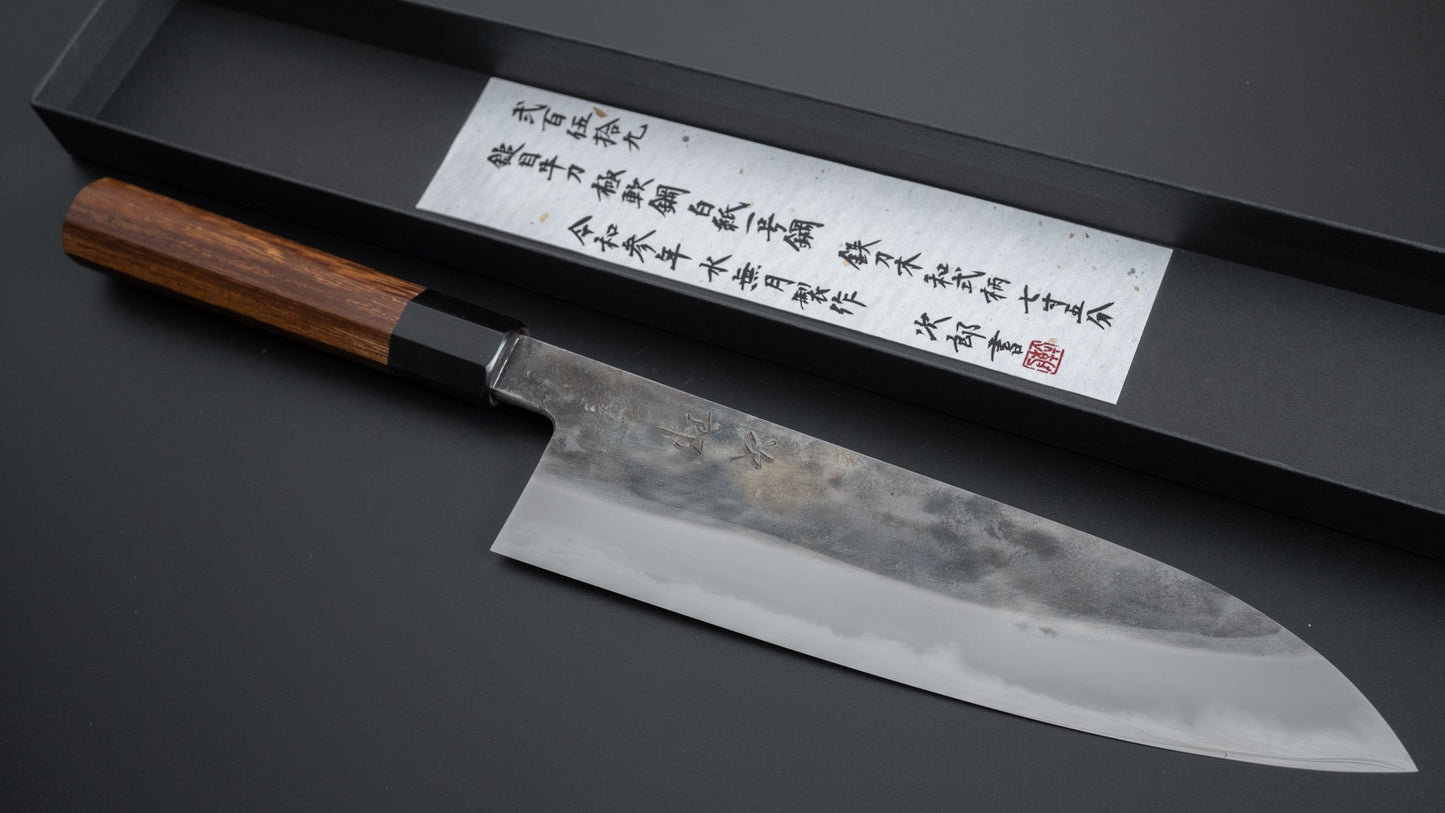 弐百伍拾九
鎚目牛刀 極軟鋼 白紙一号鋼 鉄刀木 和式柄 七寸五分
令和参年 水無月製作 次郎書